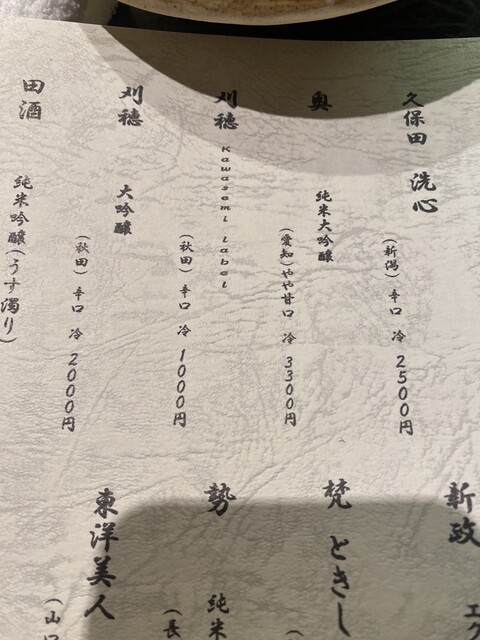 久保田 洗心
(新潟) 辛口 冷 2500円
奥 純米大吟醸
(愛知) やや甘口 冷 3300円
刈穂 Kawasemi label
(秋田) 辛口 冷 1000円
刈穂 大吟醸
(秋田) 辛口 冷 2000円
田酒 純米吟醸(うす濁り)
新政 エク
梵 ときし
(
勢 純米
(長
東洋美人
(山口